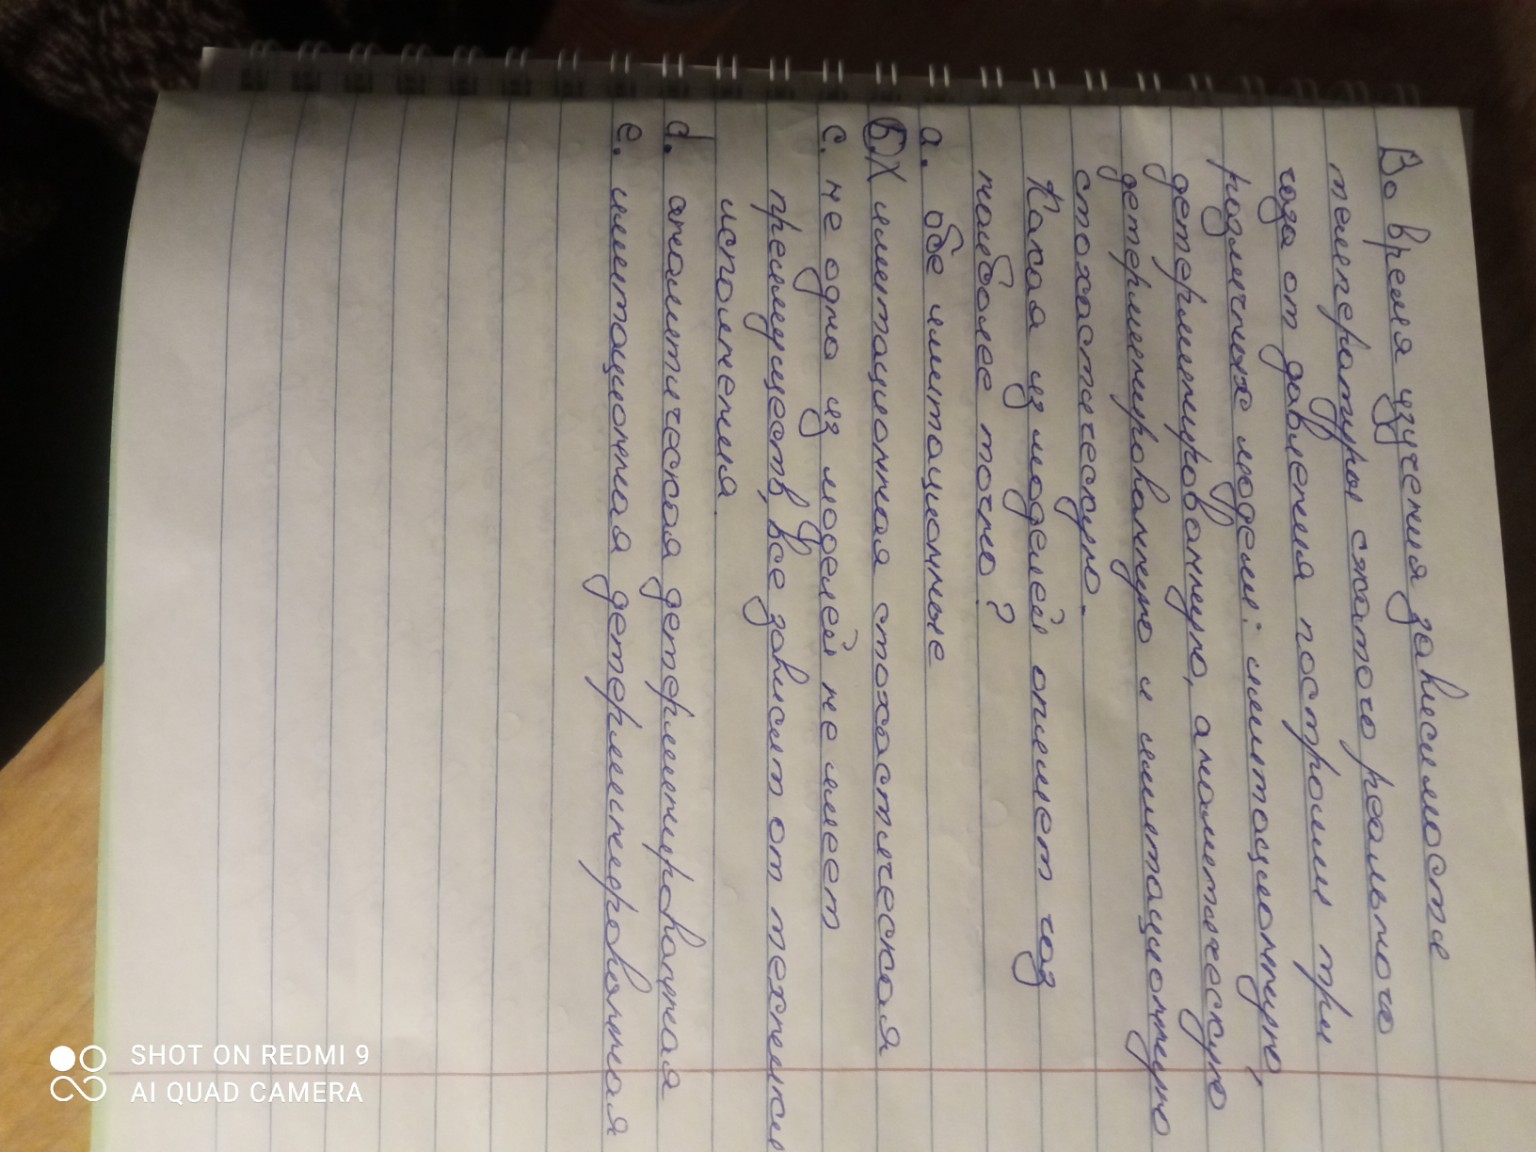 Во время изучения зависимости
температуры сжатого реального
газа от давления построили три
различные модели: имитационную,
детерминированную, аналитическую
детерминированную и имитационную
стохастическую.
Какая из моделей опишет газ
наиболее точно?
a. обе имитационные
b.X имитационная стохастическая
c. не одна из моделей не имеет
преимуществ, все зависит от техники
исполнения.
d. аналитическая детерминированная
e. имитационная детерминированная
SHOT ON REDMI 9
AI QUAD CAMERA